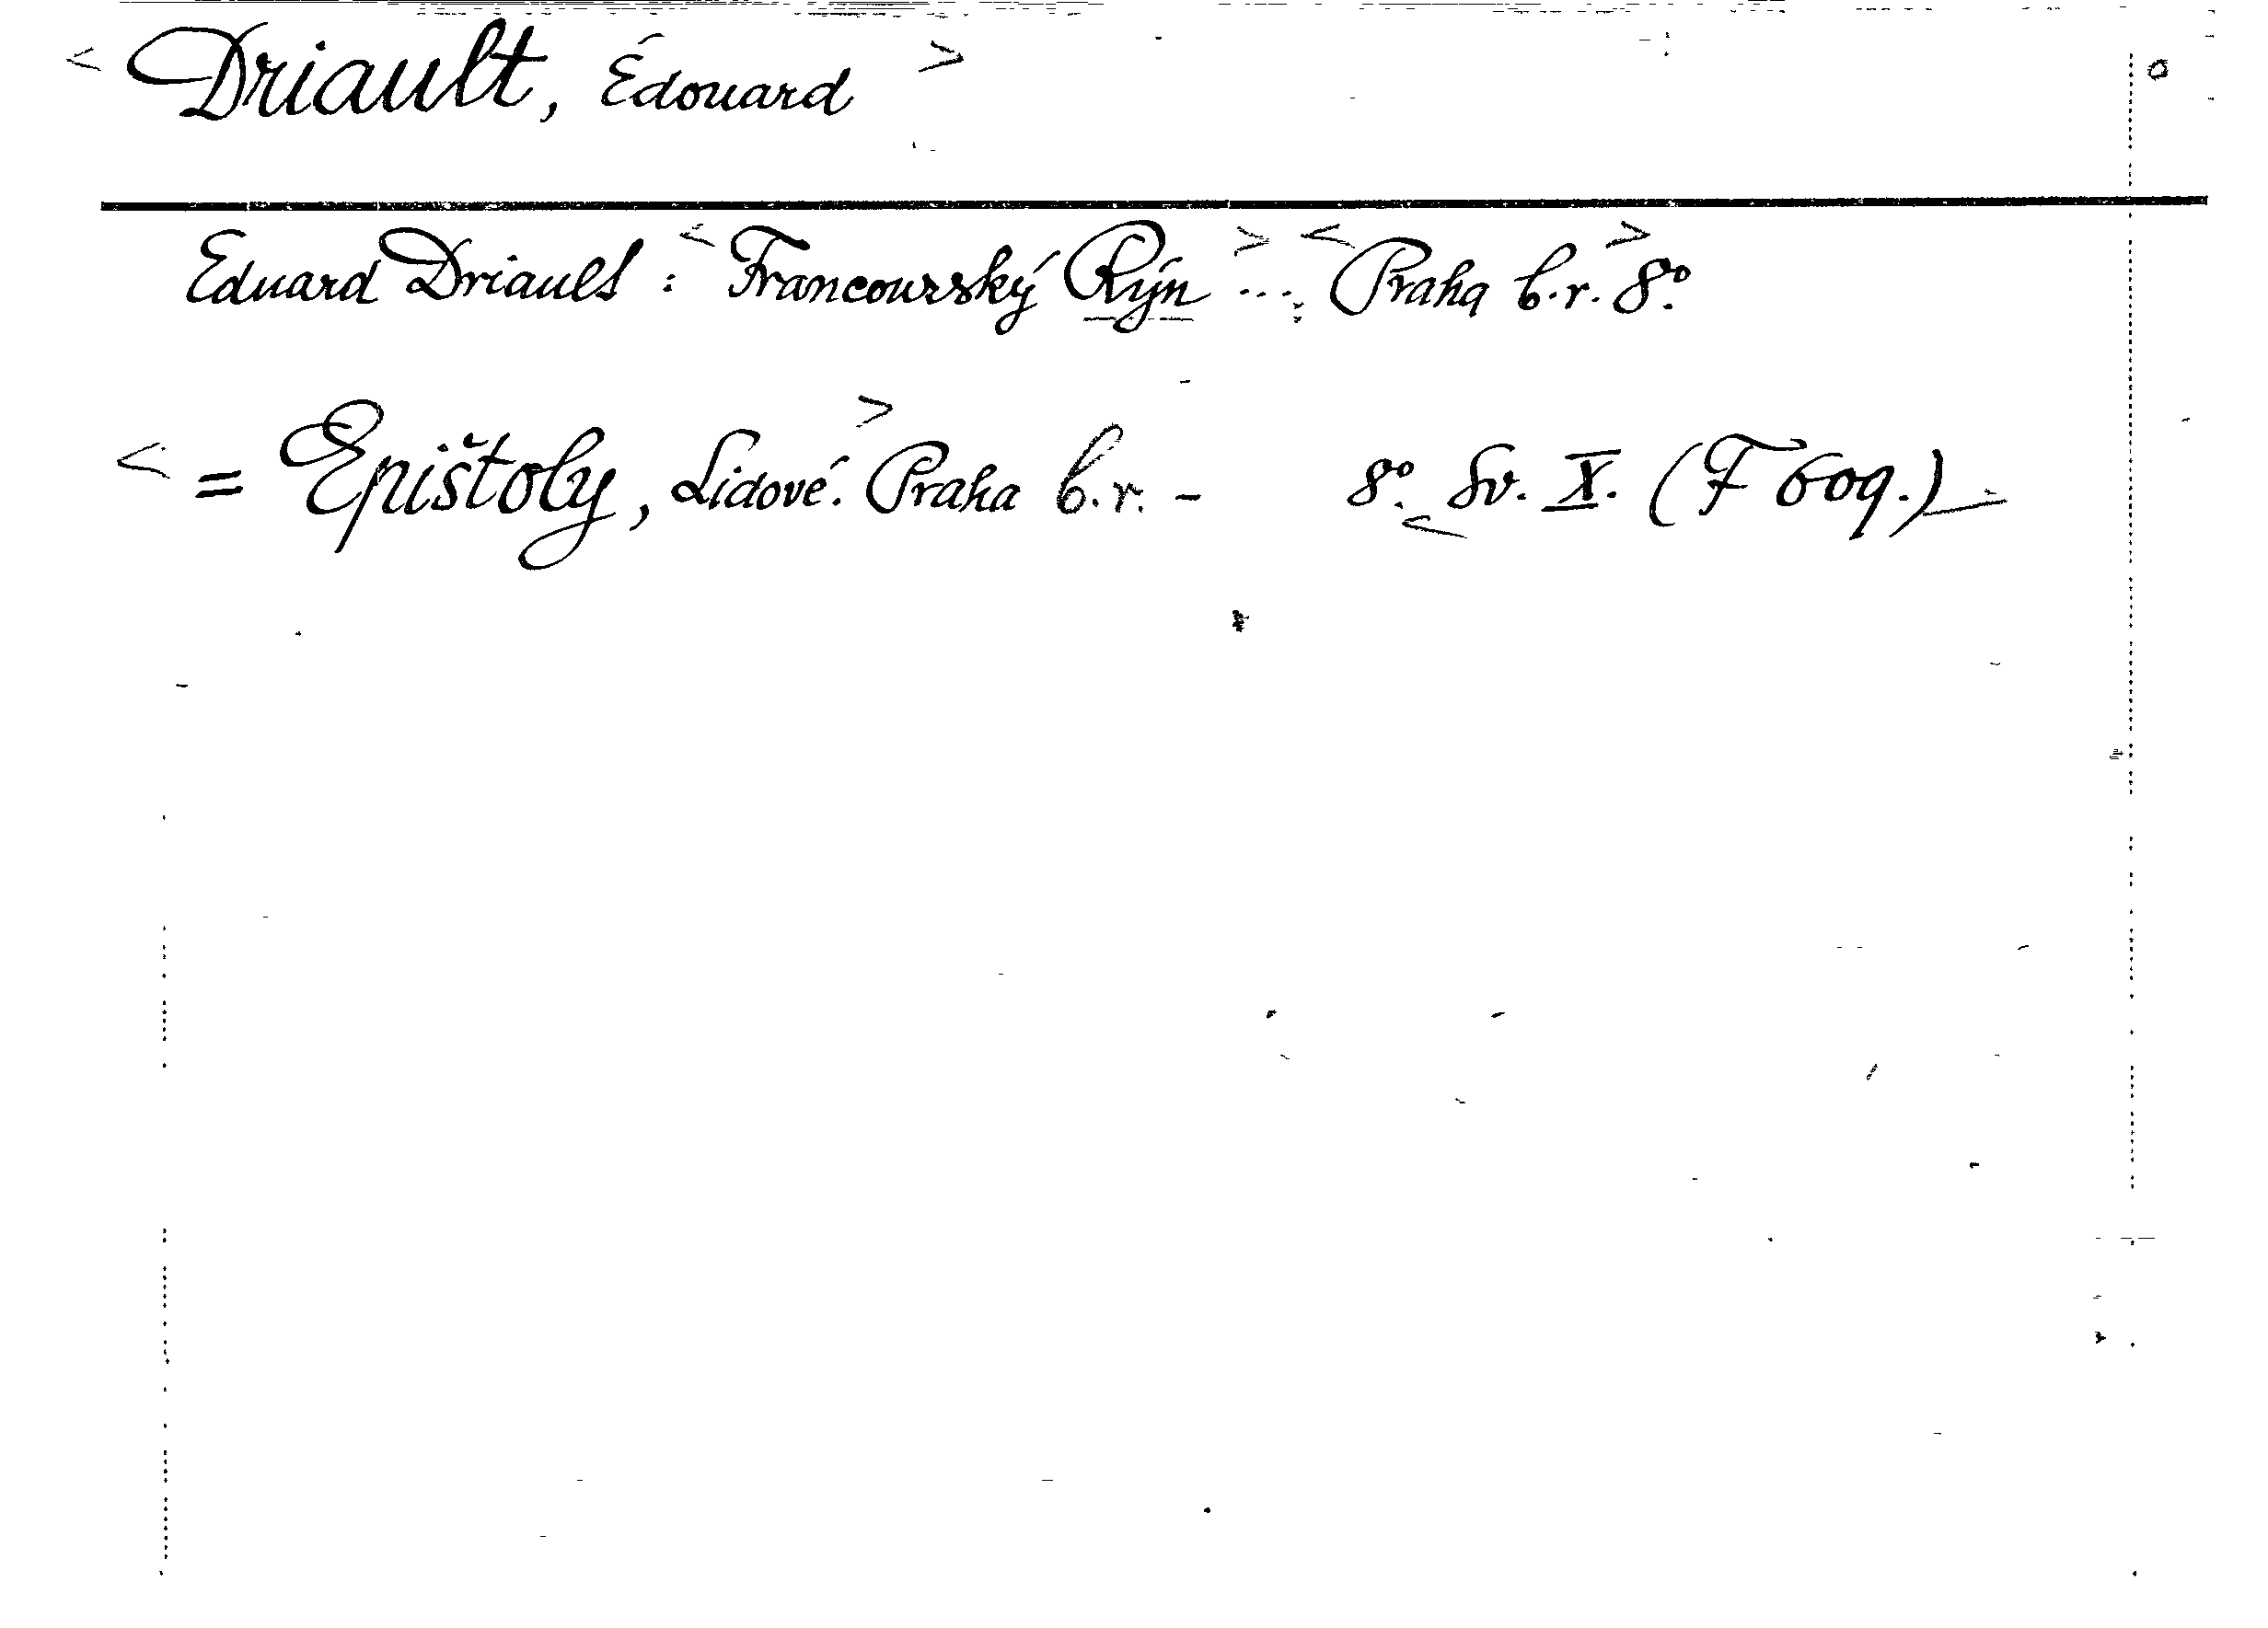 < Driault, Édouard > o
Eduard Driault : < Francouzský Rýn > ... < Praha b.r. > 8°.
< = Epištoly, Lidové. > Praha b.r. - 8°. < Sv. X. (F 609.) >